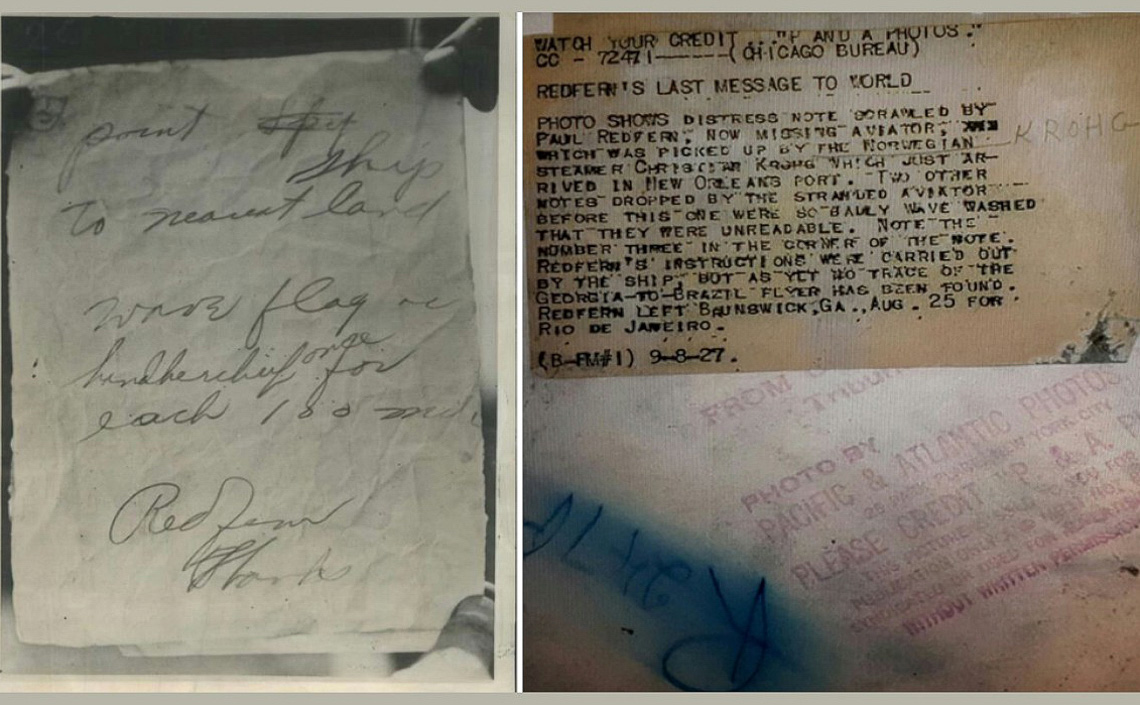 3
point
ship
to nearest land
wave flag or
once
handkerchief for
each 100 mile
Redfern
Thanks
WATCH YOUR CREDIT ... "P AND A PHOTOS."
CC - 72471------(CHICAGO BUREAU)
REDFERN'S LAST MESSAGE TO WORLD
PHOTO SHOWS DISTRESS NOTE SCRAWLED BY
PAUL REDFERN, NOW MISSING AVIATOR,
KROHG
WHICH WAS PICKED UP BY THE NORWEGIAN
STEAMER CHRISTIAN KROHG WHICH JUST AR-
RIVED IN NEW ORLEANS PORT. TWO OTHER
NOTES DROPPED BY THE STRANDED AVIATOR
BEFORE THIS ONE WERE SO BADLY WAVE WASHED
THAT THEY WERE UNREADABLE. NOTE THE
NUMBER THREE IN THE CORNER OF THE NOTE.
REDFERN'S INSTRUCTIONS WERE CARRIED OUT
BY THE SHIP, BUT AS YET NO TRACE OF THE
GEORGIA-TO-BRAZIL FLYER HAS BEEN FOUND.
REDFERN LEFT BRUNSWICK,GA.,AUG. 25 FOR
RIO DE JANEIRO.
(B-FM#1) 9-8-27.
FROM
PHOTO BY
PACIFIC & ATLANTIC PHOTOS
NEW YORK CITY
PLEASE CREDIT "P & A
WITHOUT WRITTEN PERMISSION